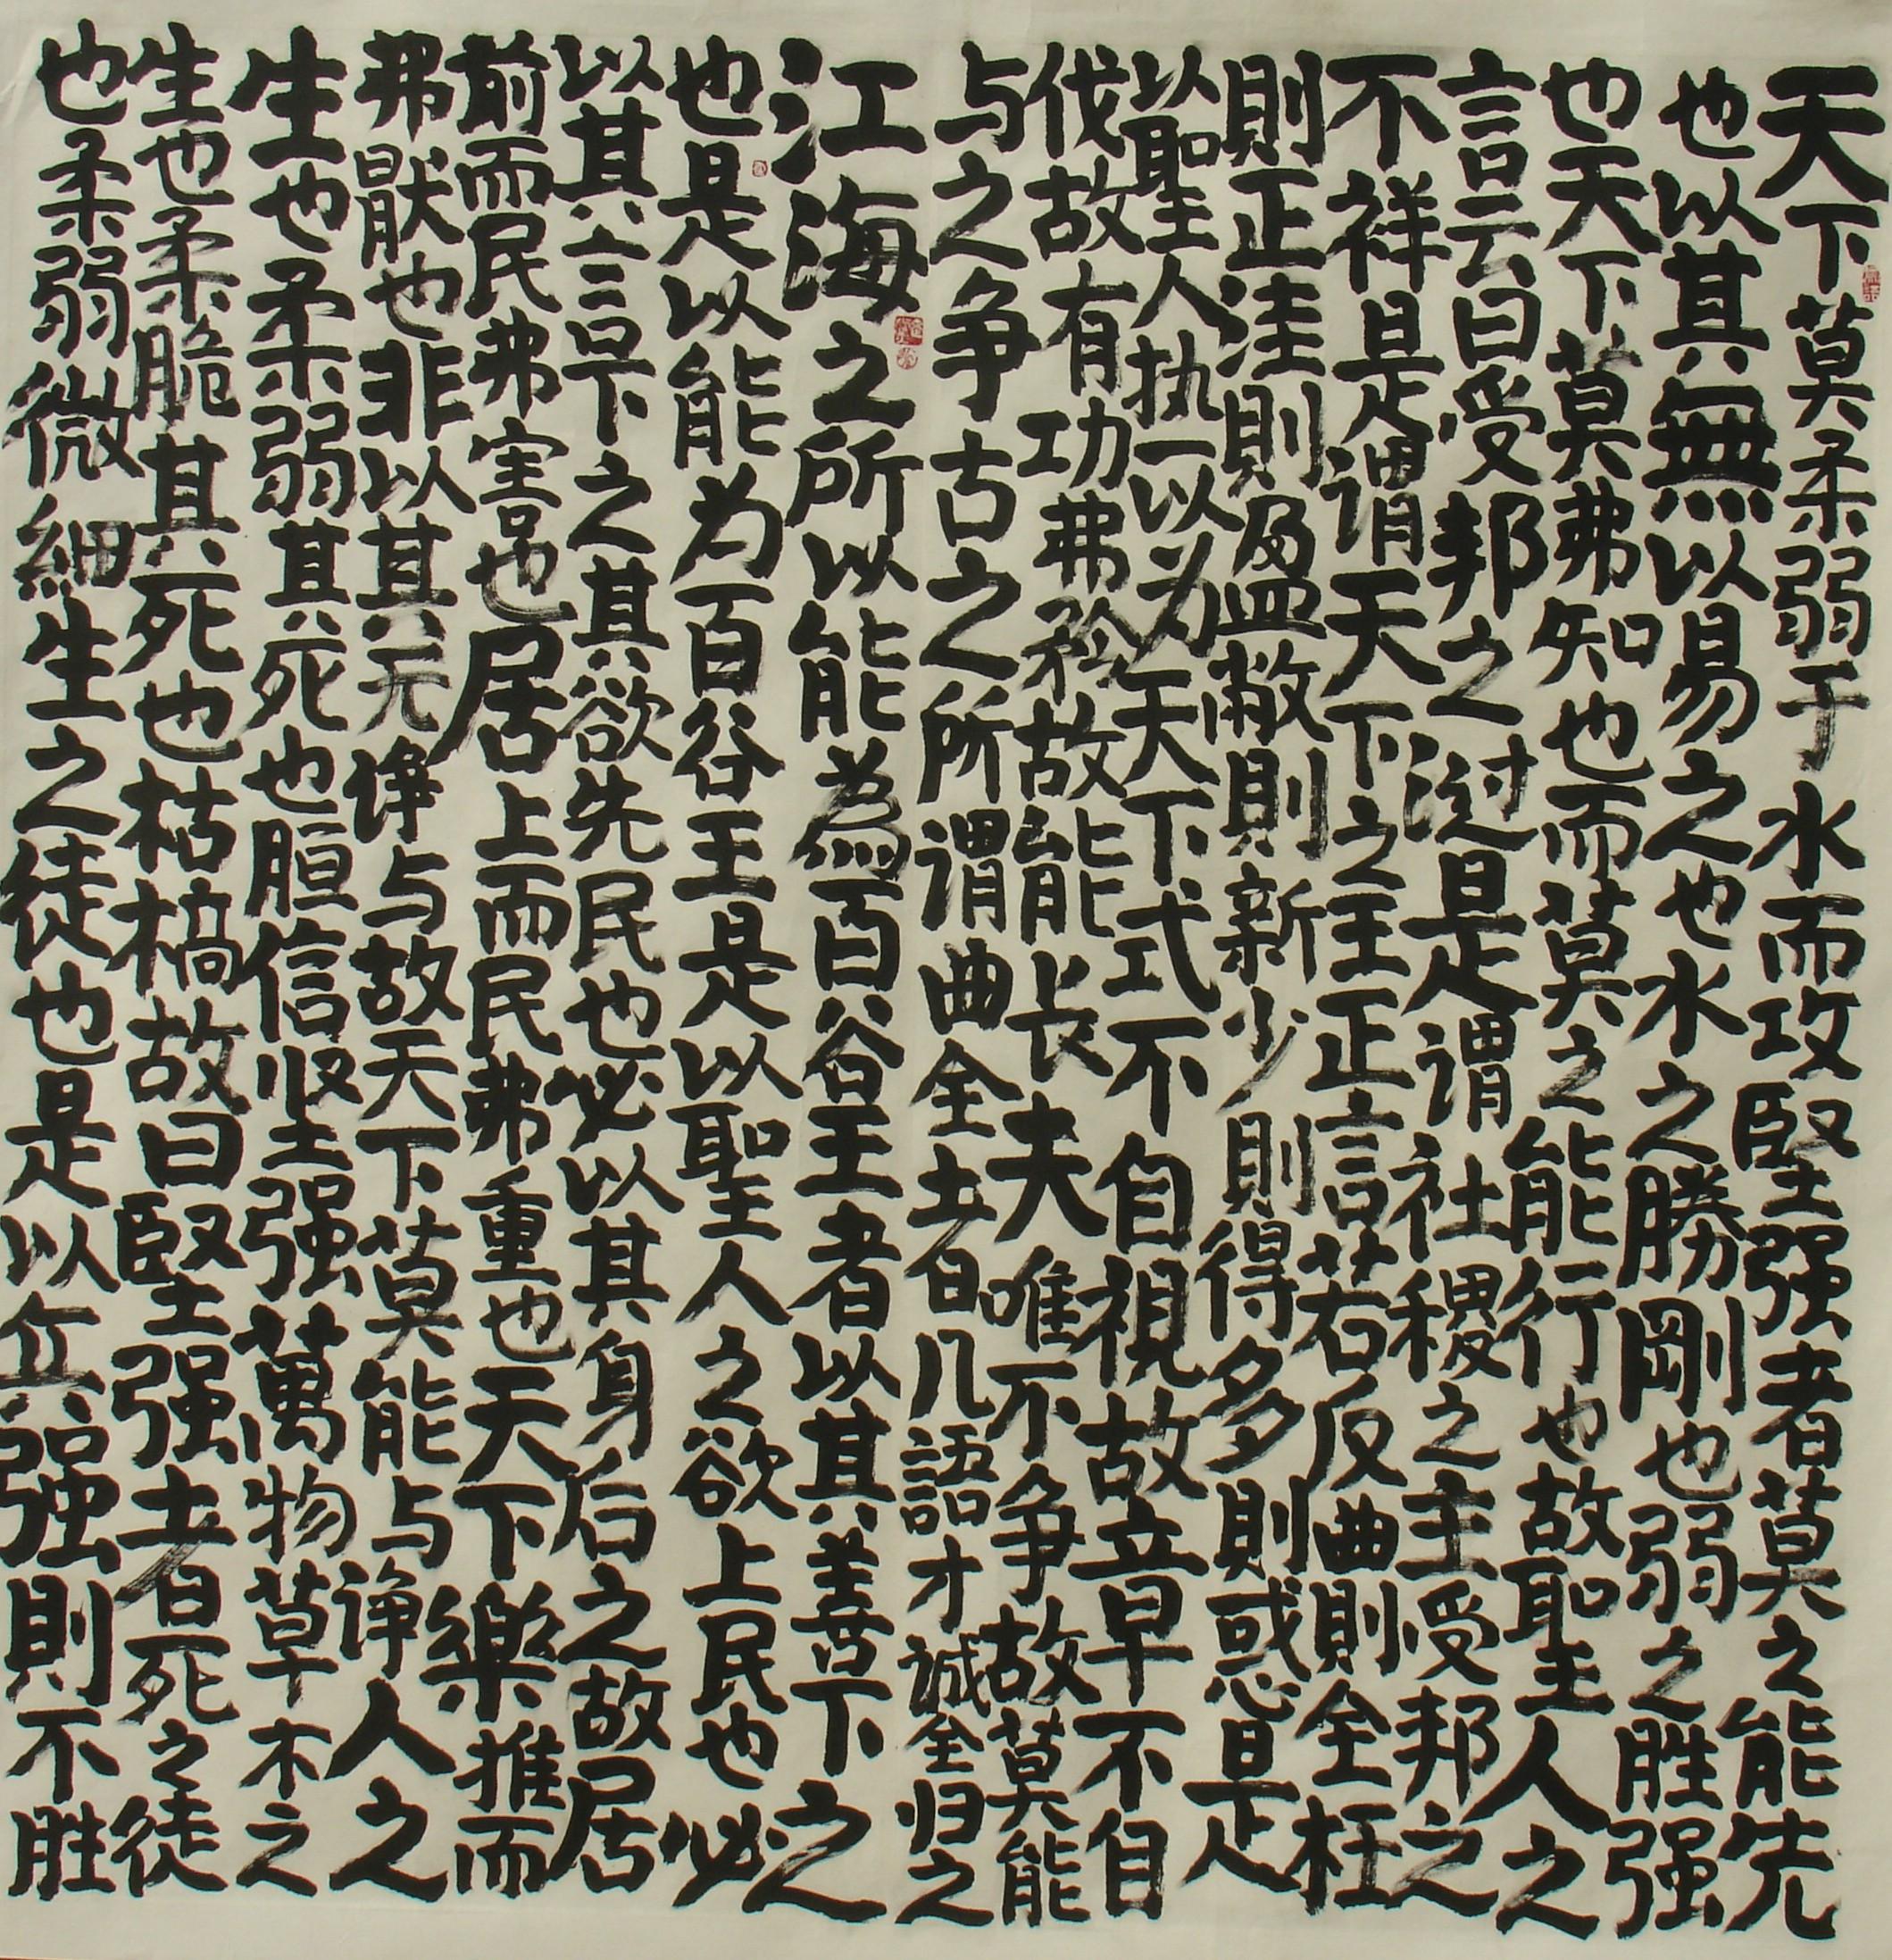 天下莫柔弱于水而攻堅强者莫之能先
也以其無以易之也水之勝剛也弱之胜强
也天下莫弗知也而莫之能行也故聖人之
言云曰受邦之过是謂社稷之主受邦之
不祥是謂天下之王正言若反曲則全枉
則正洼則盈敝則新少則得多則惑是
以聖人执一以为天下式不自視故章不自
伐故有功弗矜故能长夫唯不争故莫能
与之争古之所謂曲全者几語才誠全归之
江海之所以能為百谷王者以其善下之
也是以能为百谷王是以聖人之欲上民也必
以其言下之其欲先民也必以其身后之故居
前而民弗害也居上而民弗重也天下樂推而
弗猒也非以其无诤与故天下莫能与诤人之
生也柔弱其死也䐴信坚强萬物草木之
生也柔脆其死也枯槁故曰堅强者死之徒
也柔弱微細生之徒也是以兵强則不胜